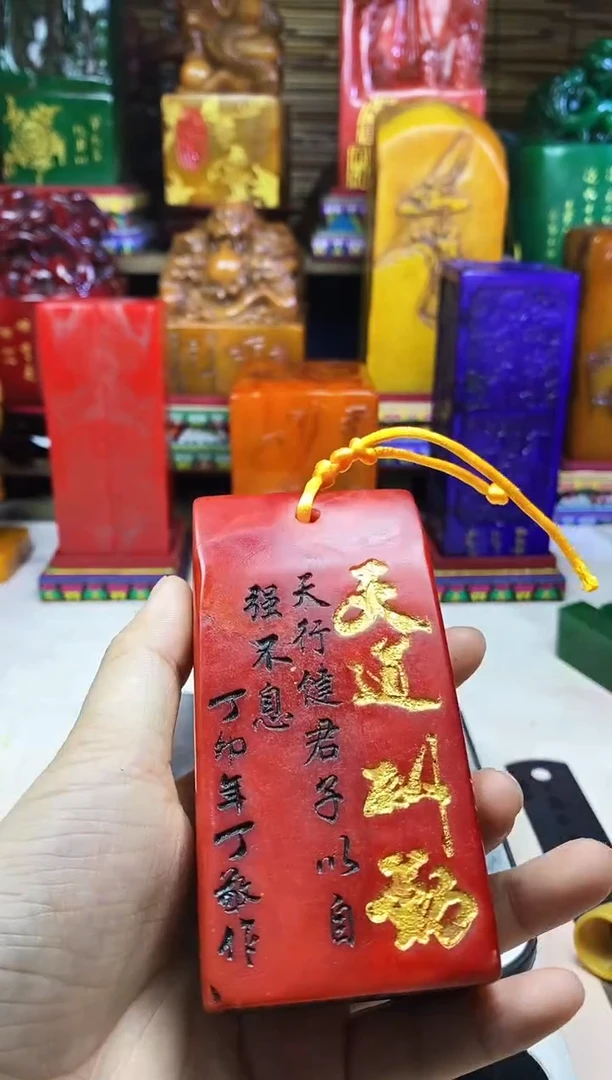 天道酬勤
天行健君子以自
强不息
丁卯年丁敬作